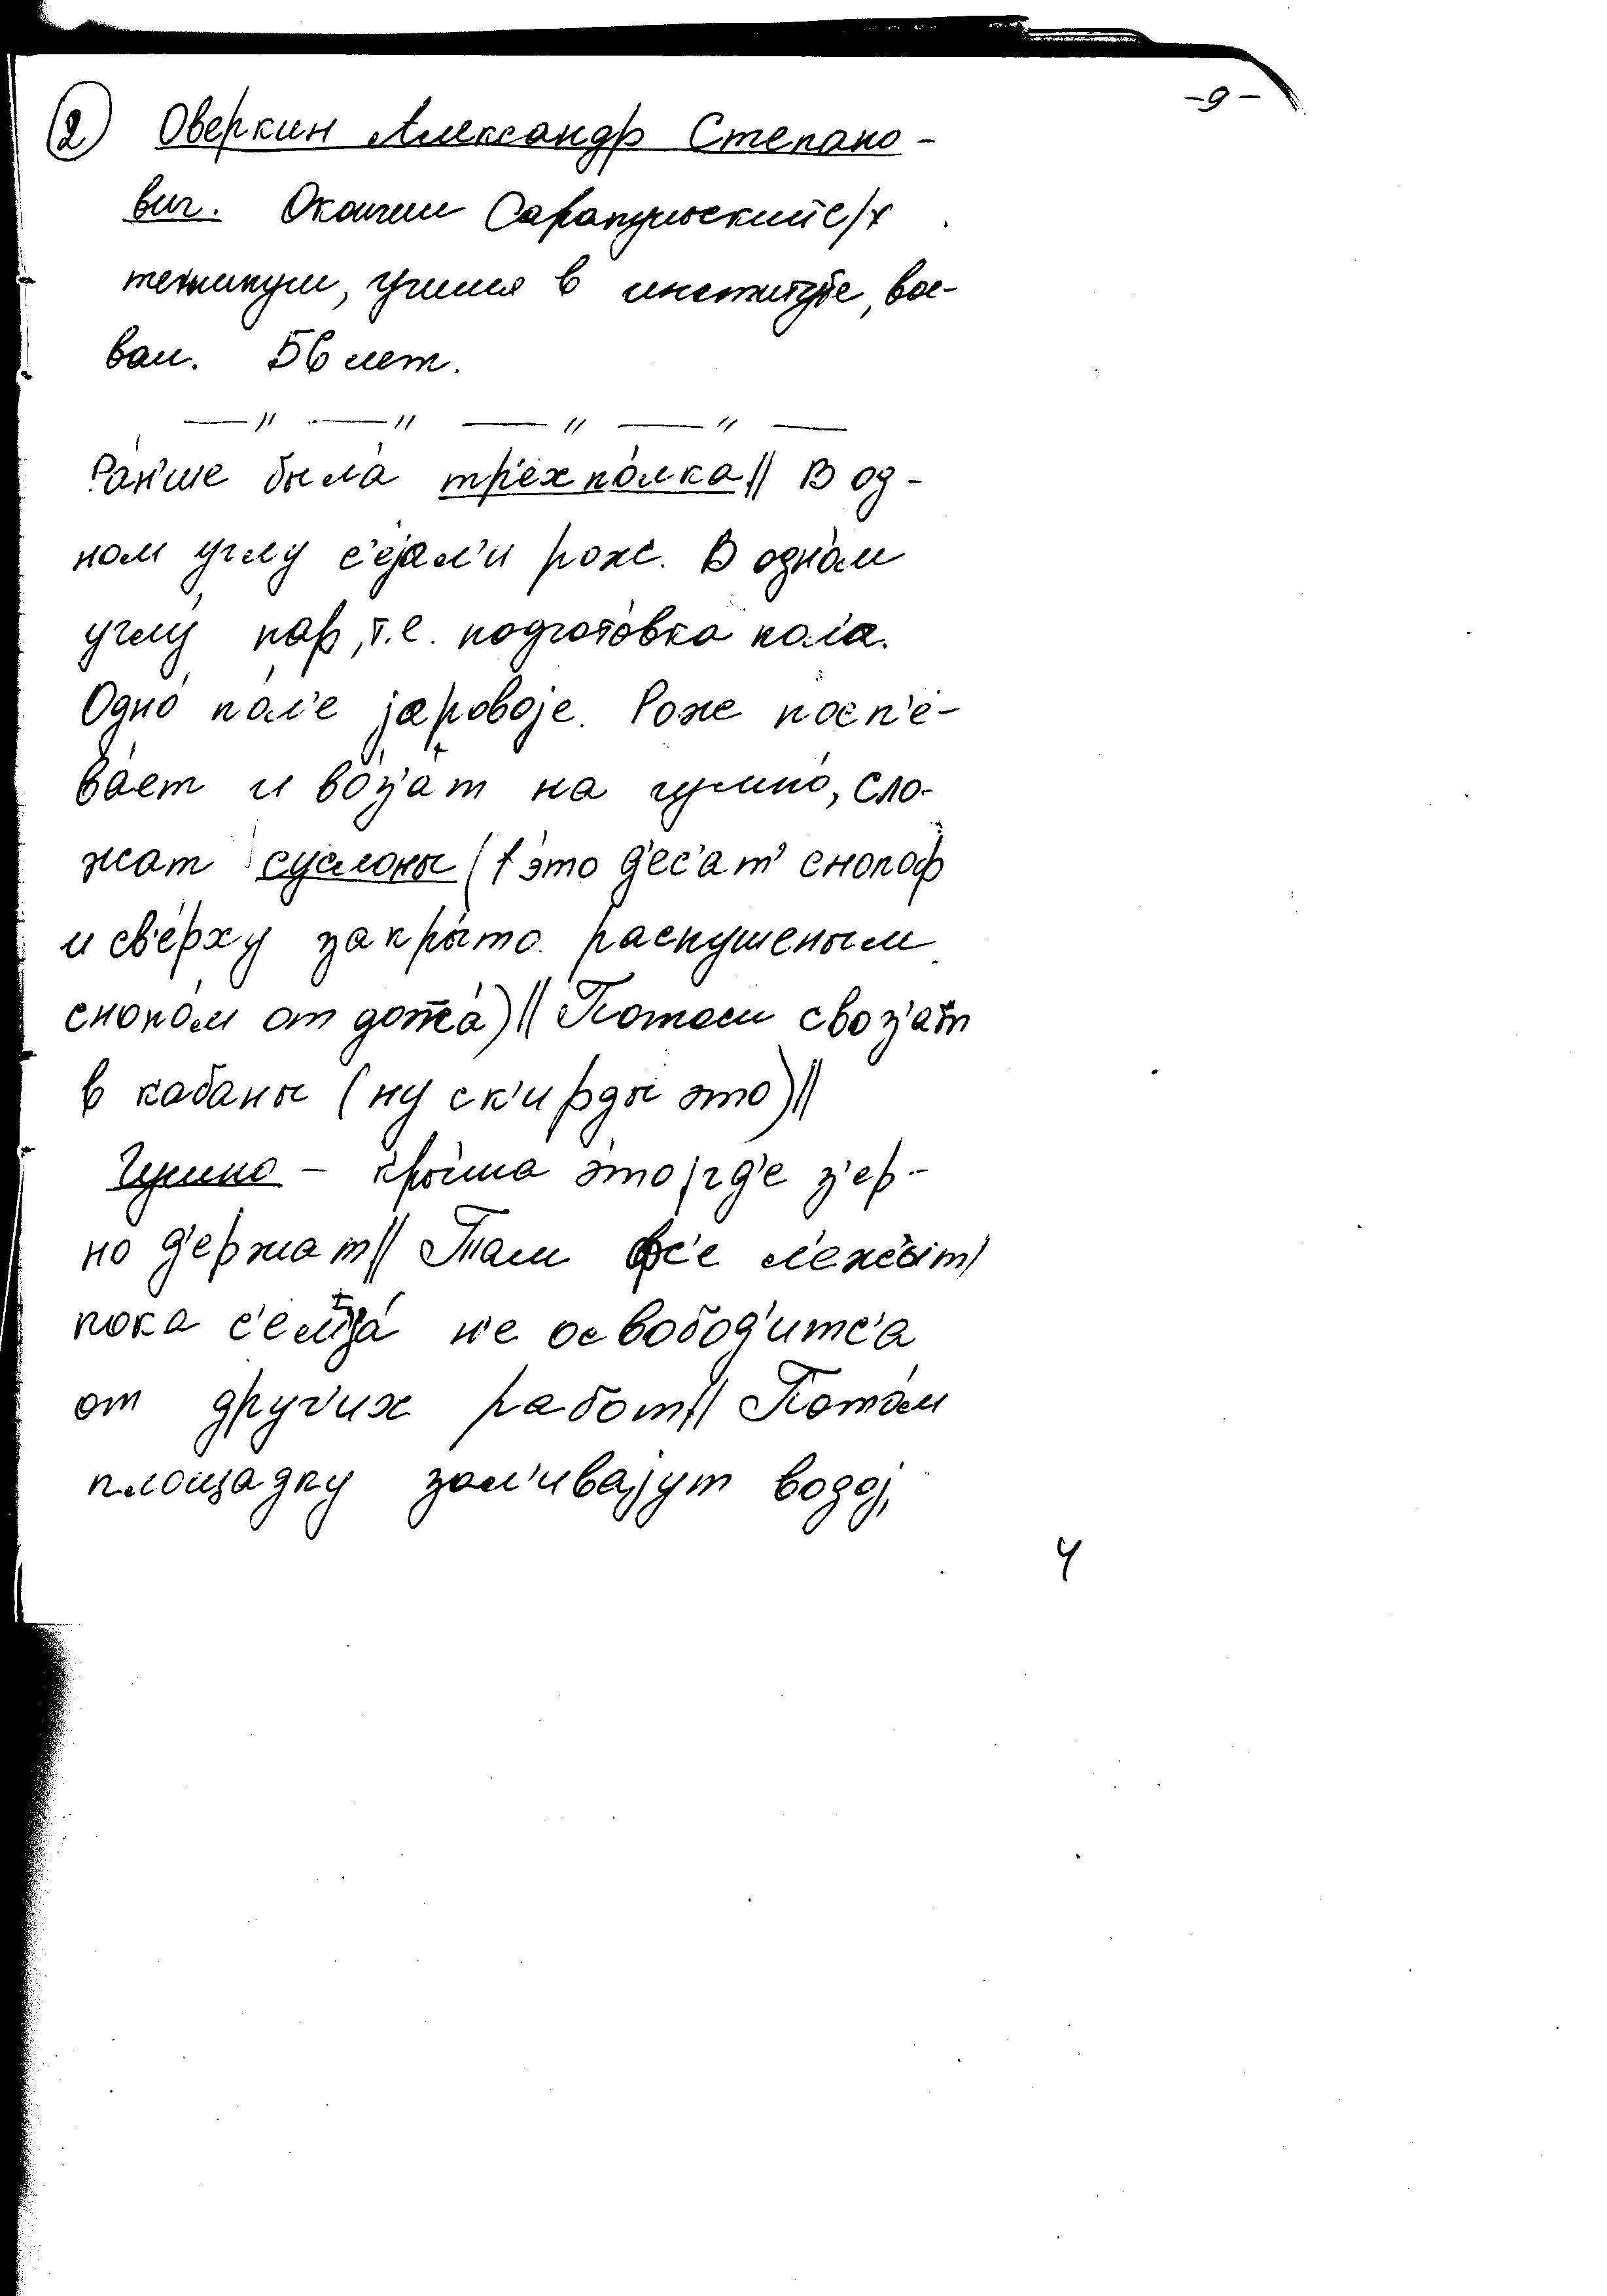 -9-
② Оверкин Александр Степано-
вич. Окончил Сарапульский с/х
техникум, учился в институте, вое-
вал. 56 лет.
— // — // — // — // —
Ра́н'ше была́ тр'ехпо́лка // В од-
ном углу с'е́јал'и рож. В одно́м
углу́ пар, т.е. подгото́вка пол'а.
Одно́ по́л'е јаровоје. Рож посп'е-
ва́ет и во́з'ат на гумно́, сло-
жат суслоны (это д'ес'ат' снопоф
и св'е́рху закры́то распушеным
снопо́м от дожа́) // Потом своз'ат
в кабаны (ну ск'ирды это) //
Гумно – кры́ша это, гд'е з'ер-
но д'ержат // Там вс'е л'ежы́т,
пока с'емја́ н'е освобод'итс'а
от друг'их работ // Пото́м
площадку зал'ивајут водој,
4